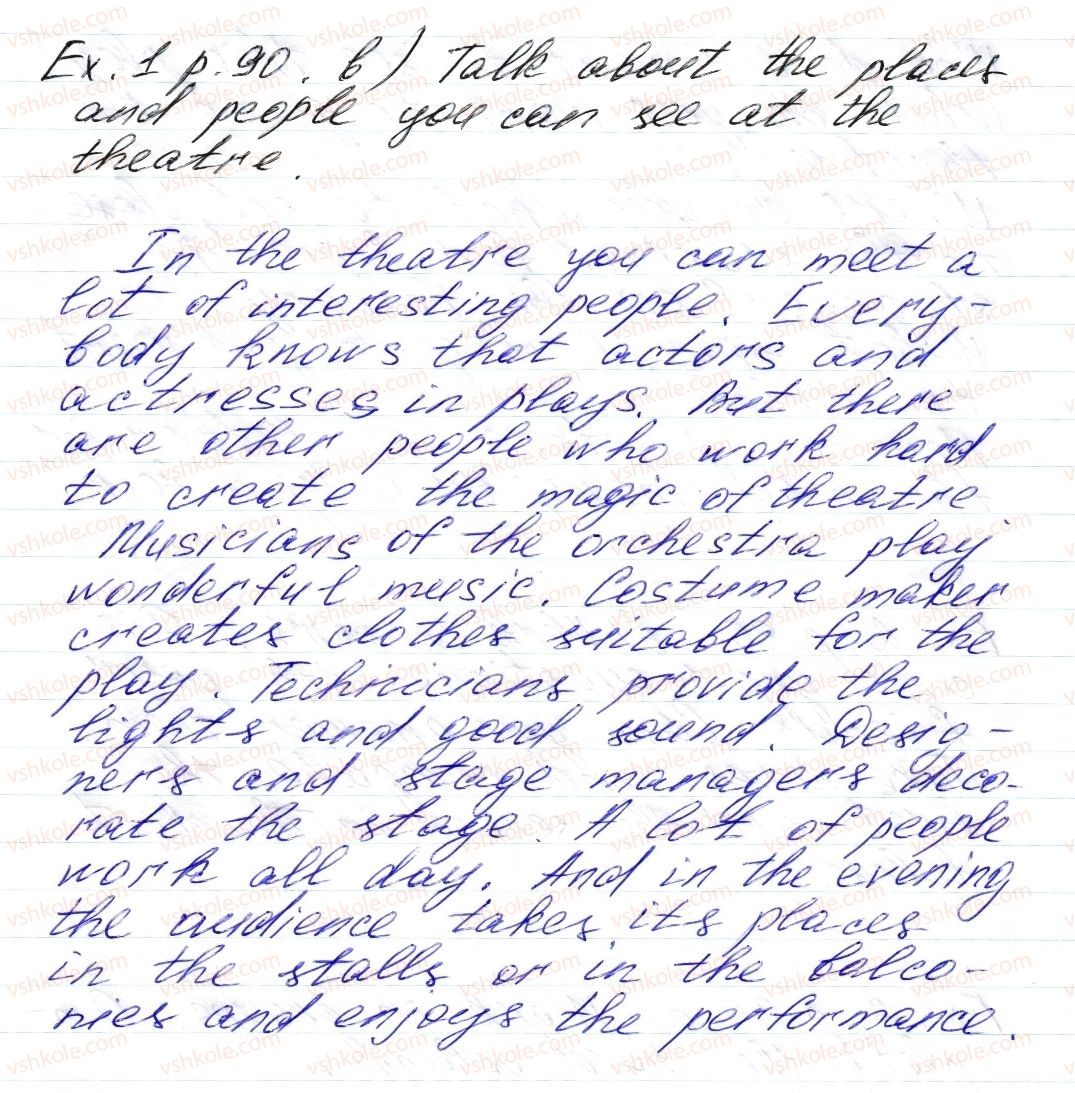 Ex. 1 p. 90. b) Talk about the places
and people you can see at the
theatre.
In the theatre you can meet a
lot of interesting people. Every-
body knows that actors and
actresses in plays. But there
are other people who work hard
to create the magic of theatre
Musicians of the orchestra play
wonderful music. Costume maker
creates clothes suitable for the
play. Technicians provide the
lights and good sound. Desig-
ners and stage managers deco-
rate the stage. A lot of people
work all day. And in the evening
the audience takes its places
in the stalls or in the balco-
nies and enjoys the performance.
vshkole.com